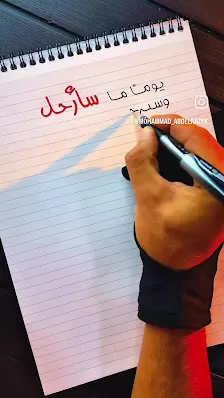 يومًا ما سأرحل
@MOHAMMAD_ABDELRAZEK